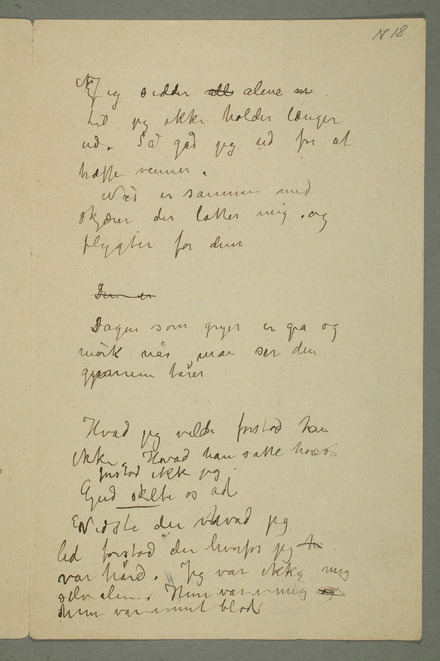 N 18
Jeg sidder alene
til jeg ikke holder længer
ud. Så går jeg ud for at
træffe venner.
Når er sammen med
skjærer der latter mig. og
flygter for dem
Den er
Dagen som gryer er gra og
mörk når man ser den
gjennem tårer
Hvad jeg vilde forstod han
ikke Hvad han satte høiest
forstod ikke jeg.
Gud skilte os ad
Vidste du hvad jeg
led forstod du hvorfor jeg
var hård. Jeg var ikke mig
selv alene. Hun var i mig
Hun var i mit blod